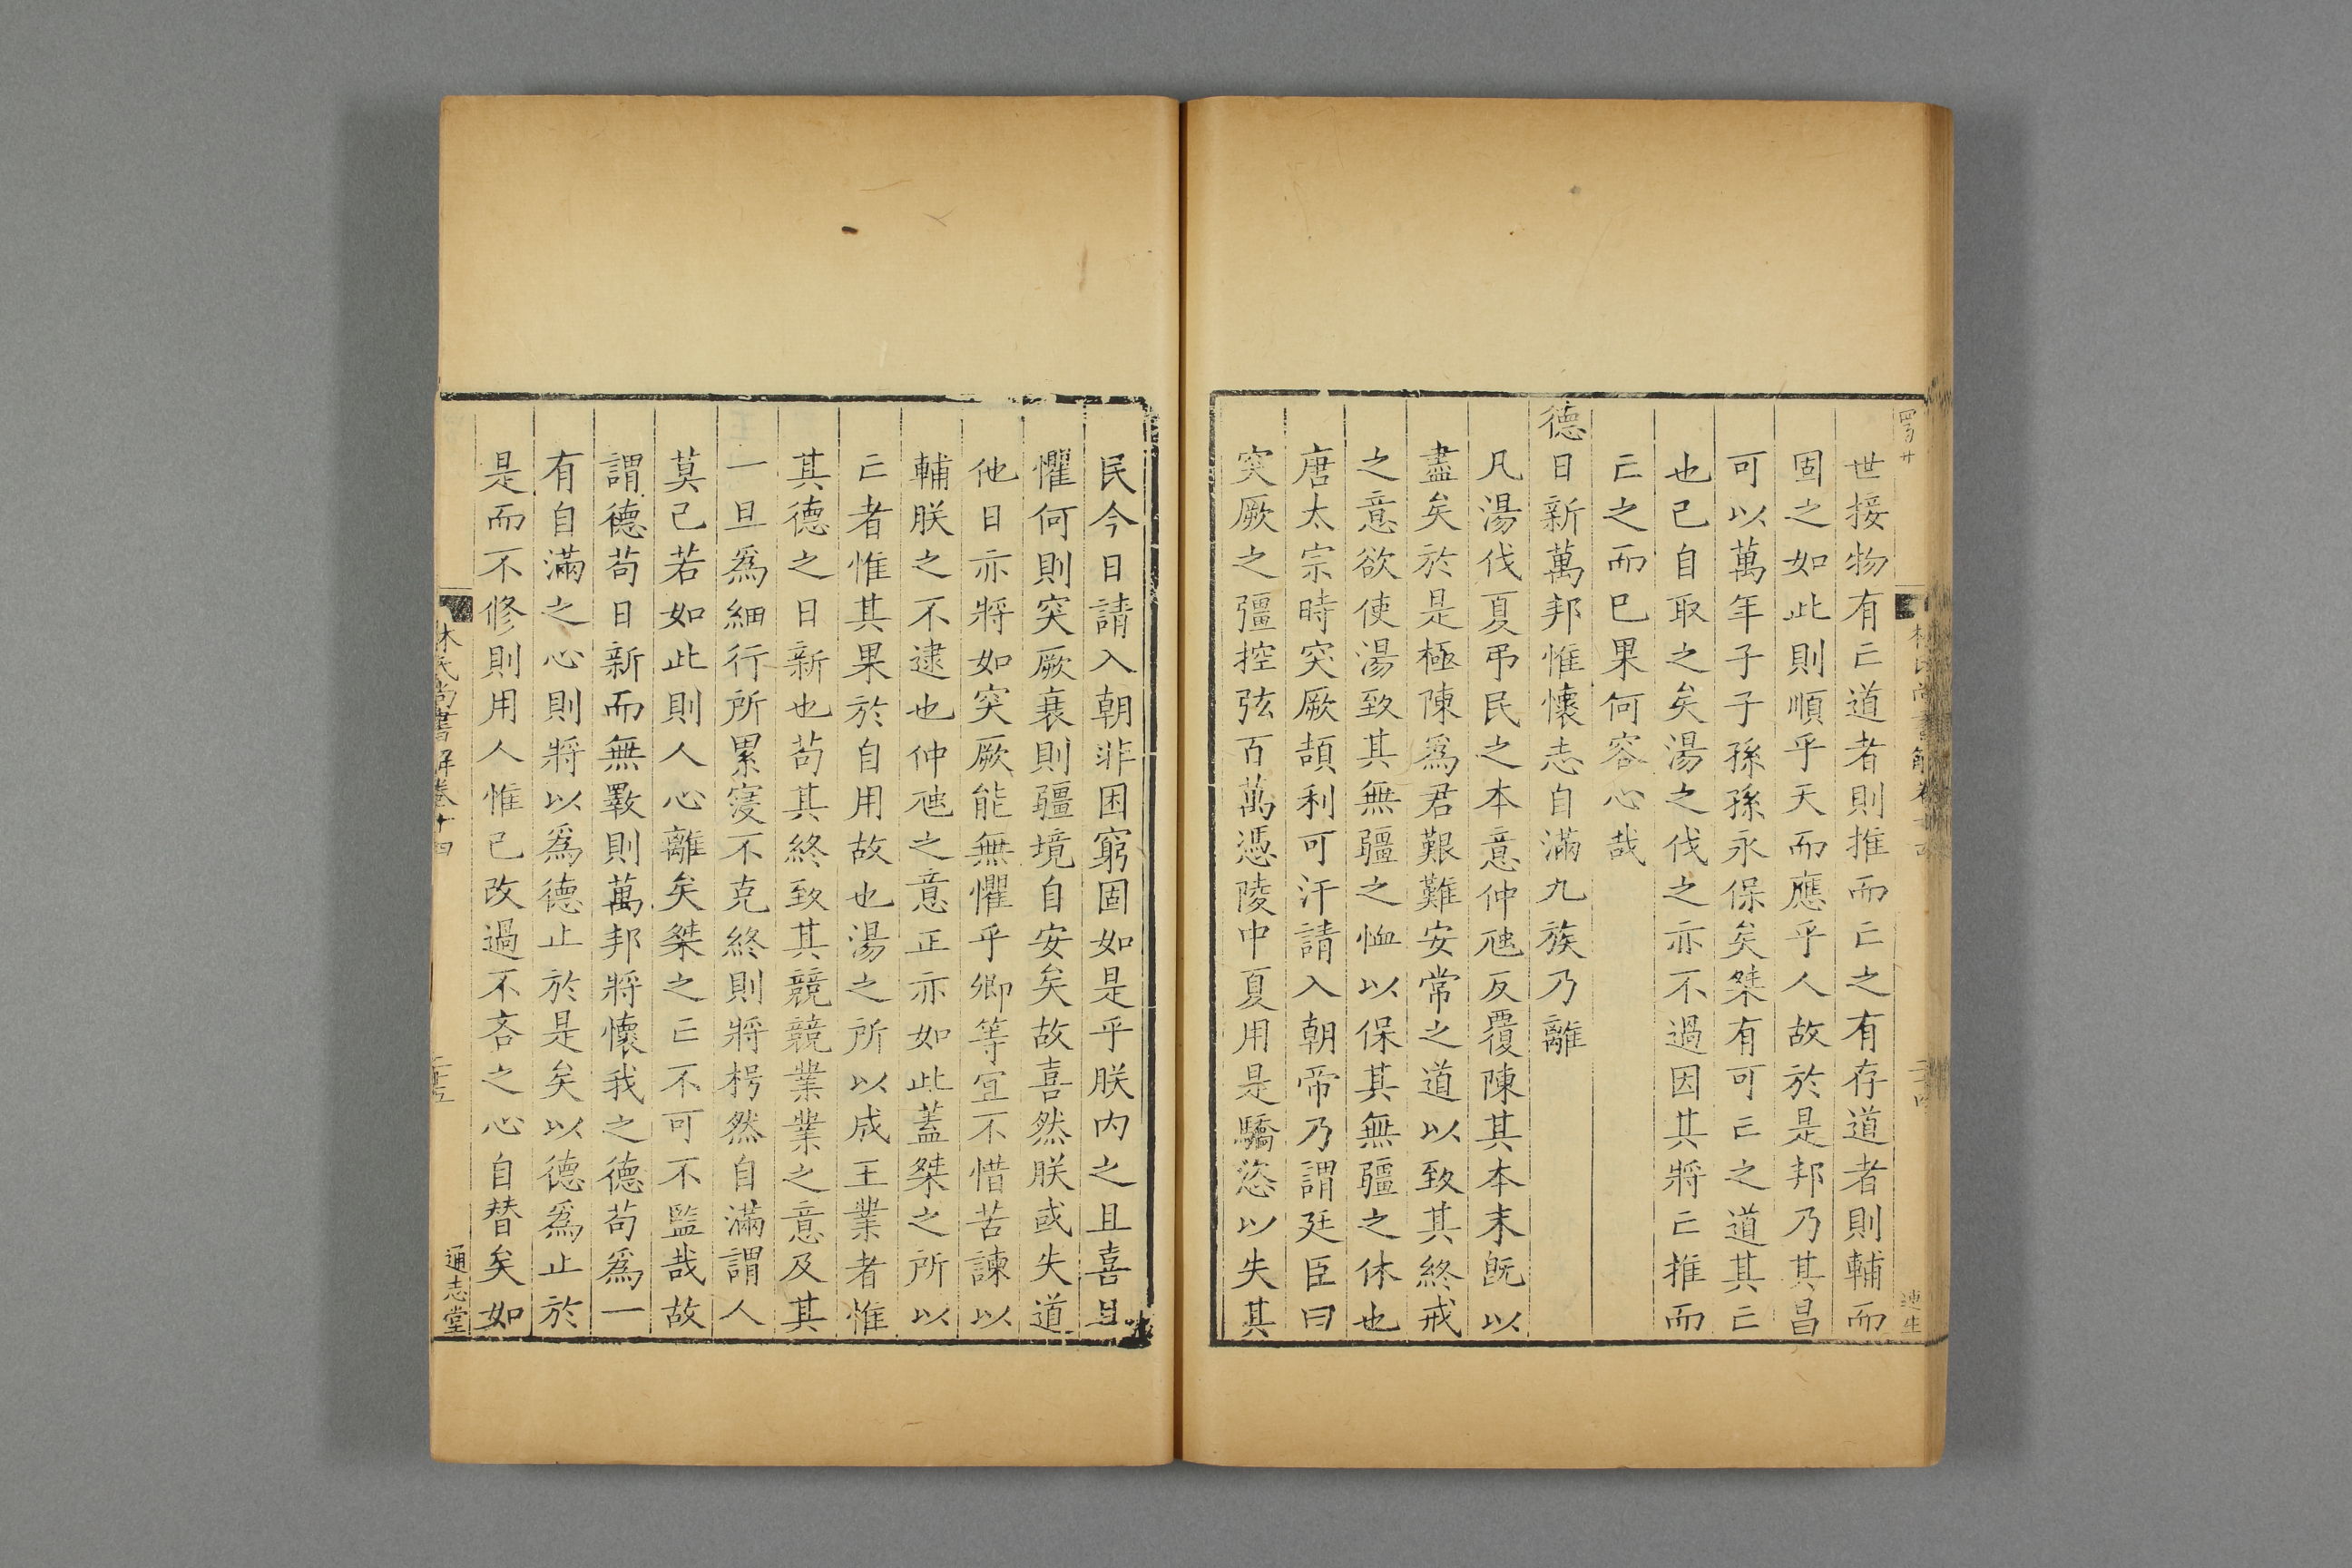 世接物有亾道者則推而亾之有存道者則輔而
固之如此則順乎天而應乎人故於是邦乃其昌
可以萬年子子孫孫永保矣桀有可亾之道其亾
也已自取之矣湯之伐之亦不過因其將亾推而
亾之而已果何容心哉
德日新萬邦惟懷志自滿九族乃離
凡湯伐夏弔民之本意仲虺反覆陳其本末旣以
盡矣於是極陳爲君艱難安常之道以致其終戒
之意欲使湯致其無疆之恤以保其無疆之休也
唐太宗時突厥頡利可汗請入朝帝乃謂廷臣曰
突厥之彊控弦百萬憑陵中夏用是驕恣以失其
民今日請入朝非困窮固如是乎朕内之且喜且
懼何則突厥衰則疆境自安矣故喜然朕或失道
他日亦將如突厥能無懼乎卿等宜不惜苦諫以
輔朕之不逮也仲虺之意正亦如此蓋桀之所以
亾者惟其果於自用故也湯之所以成王業者惟
其德之日新也苟其終致其競競業業之意及其
一旦爲細行所累寖不克終則將枵然自滿謂人
莫己若如此則人心離矣桀之亾不可不監哉故
謂德苟日新而無斁則萬邦將懷我之德苟爲一
有自滿之心則將以爲德止於是矣以德爲止於
是而不修則用人惟己改過不吝之心自替矣如
林氏尚書解卷十四
二十五
通志堂